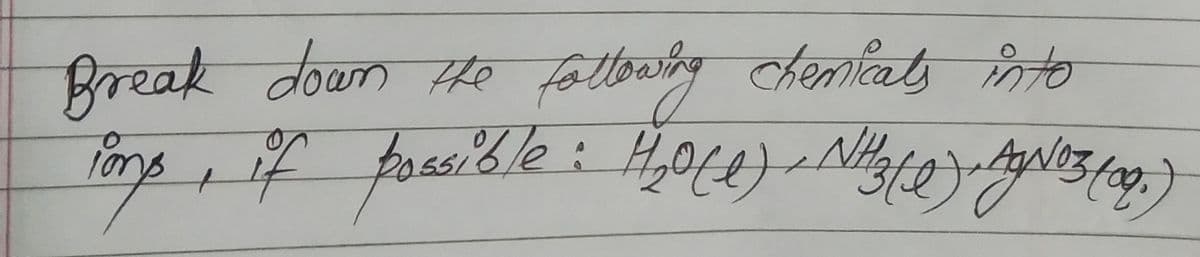 Break down the following chemicals into
ions, if possible: H₂O(l), NH₃(l), AgNO₃(aq.)